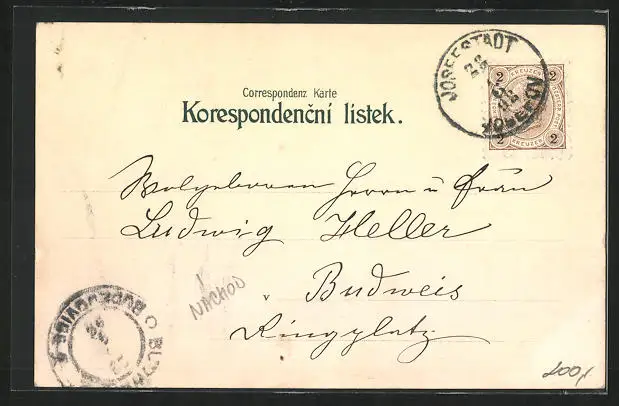 JOSEFSTADT
28
JOSEFOV
2 2
KREUZER
KREUZER
2 2
Correspondenz Karte
Korespondenční lístek.
Wolgeboren Herrn u Frau
Ludwig Heller
Budweis
Ringplatz
NACHOD
BUDĚJOVICE
200,